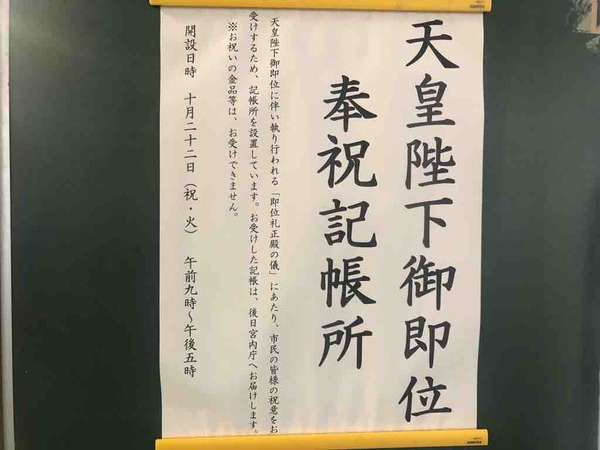 天皇陛下御即位
奉祝記帳所
天皇陛下御即位に伴い執り行われる「即位礼正殿の儀」にあたり、市民の皆様の祝意をお
受けするため、記帳所を設置しています。お受けした記帳は、後日宮内庁へお届けします。
※お祝いの金品等は、お受けできません。
開設日時　十月二十二日（祝・火）　午前九時～午後五時